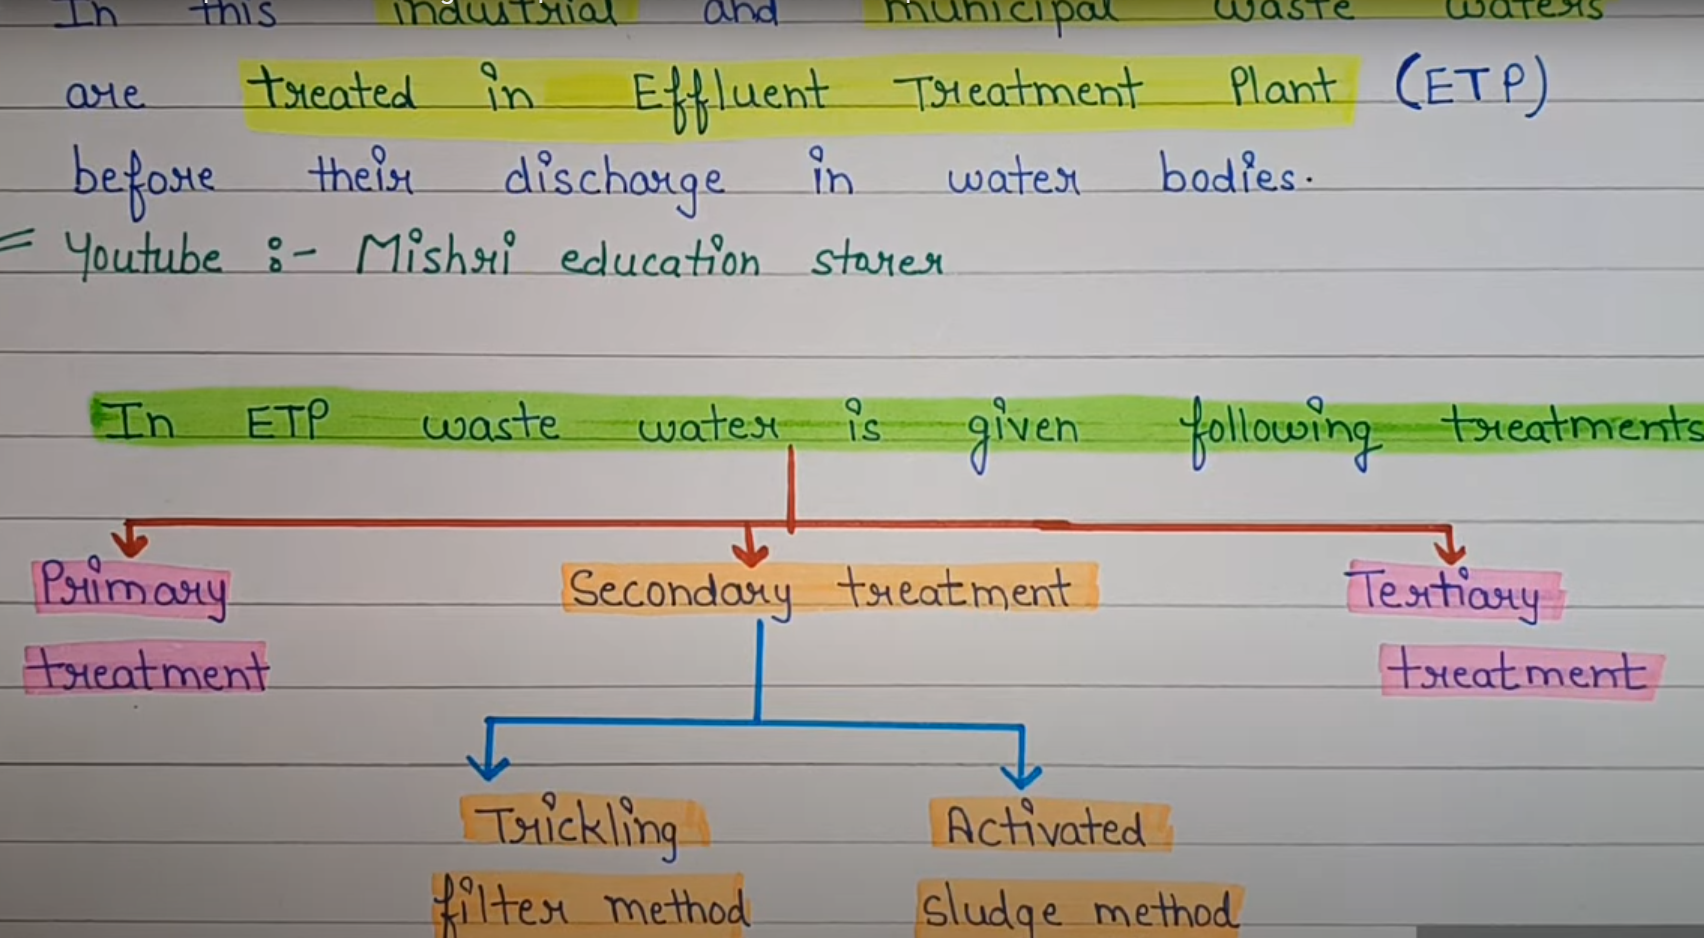 In this industrial and municipal waste waters
are treated in Effluent Treatment Plant (ETP)
before their discharge in water bodies.
= Youtube :- Mishri education starer
In ETP waste water is given following treatments
Primary
treatment
Secondary treatment
Tertiary
treatment
Trickling
filter method
Activated
sludge method